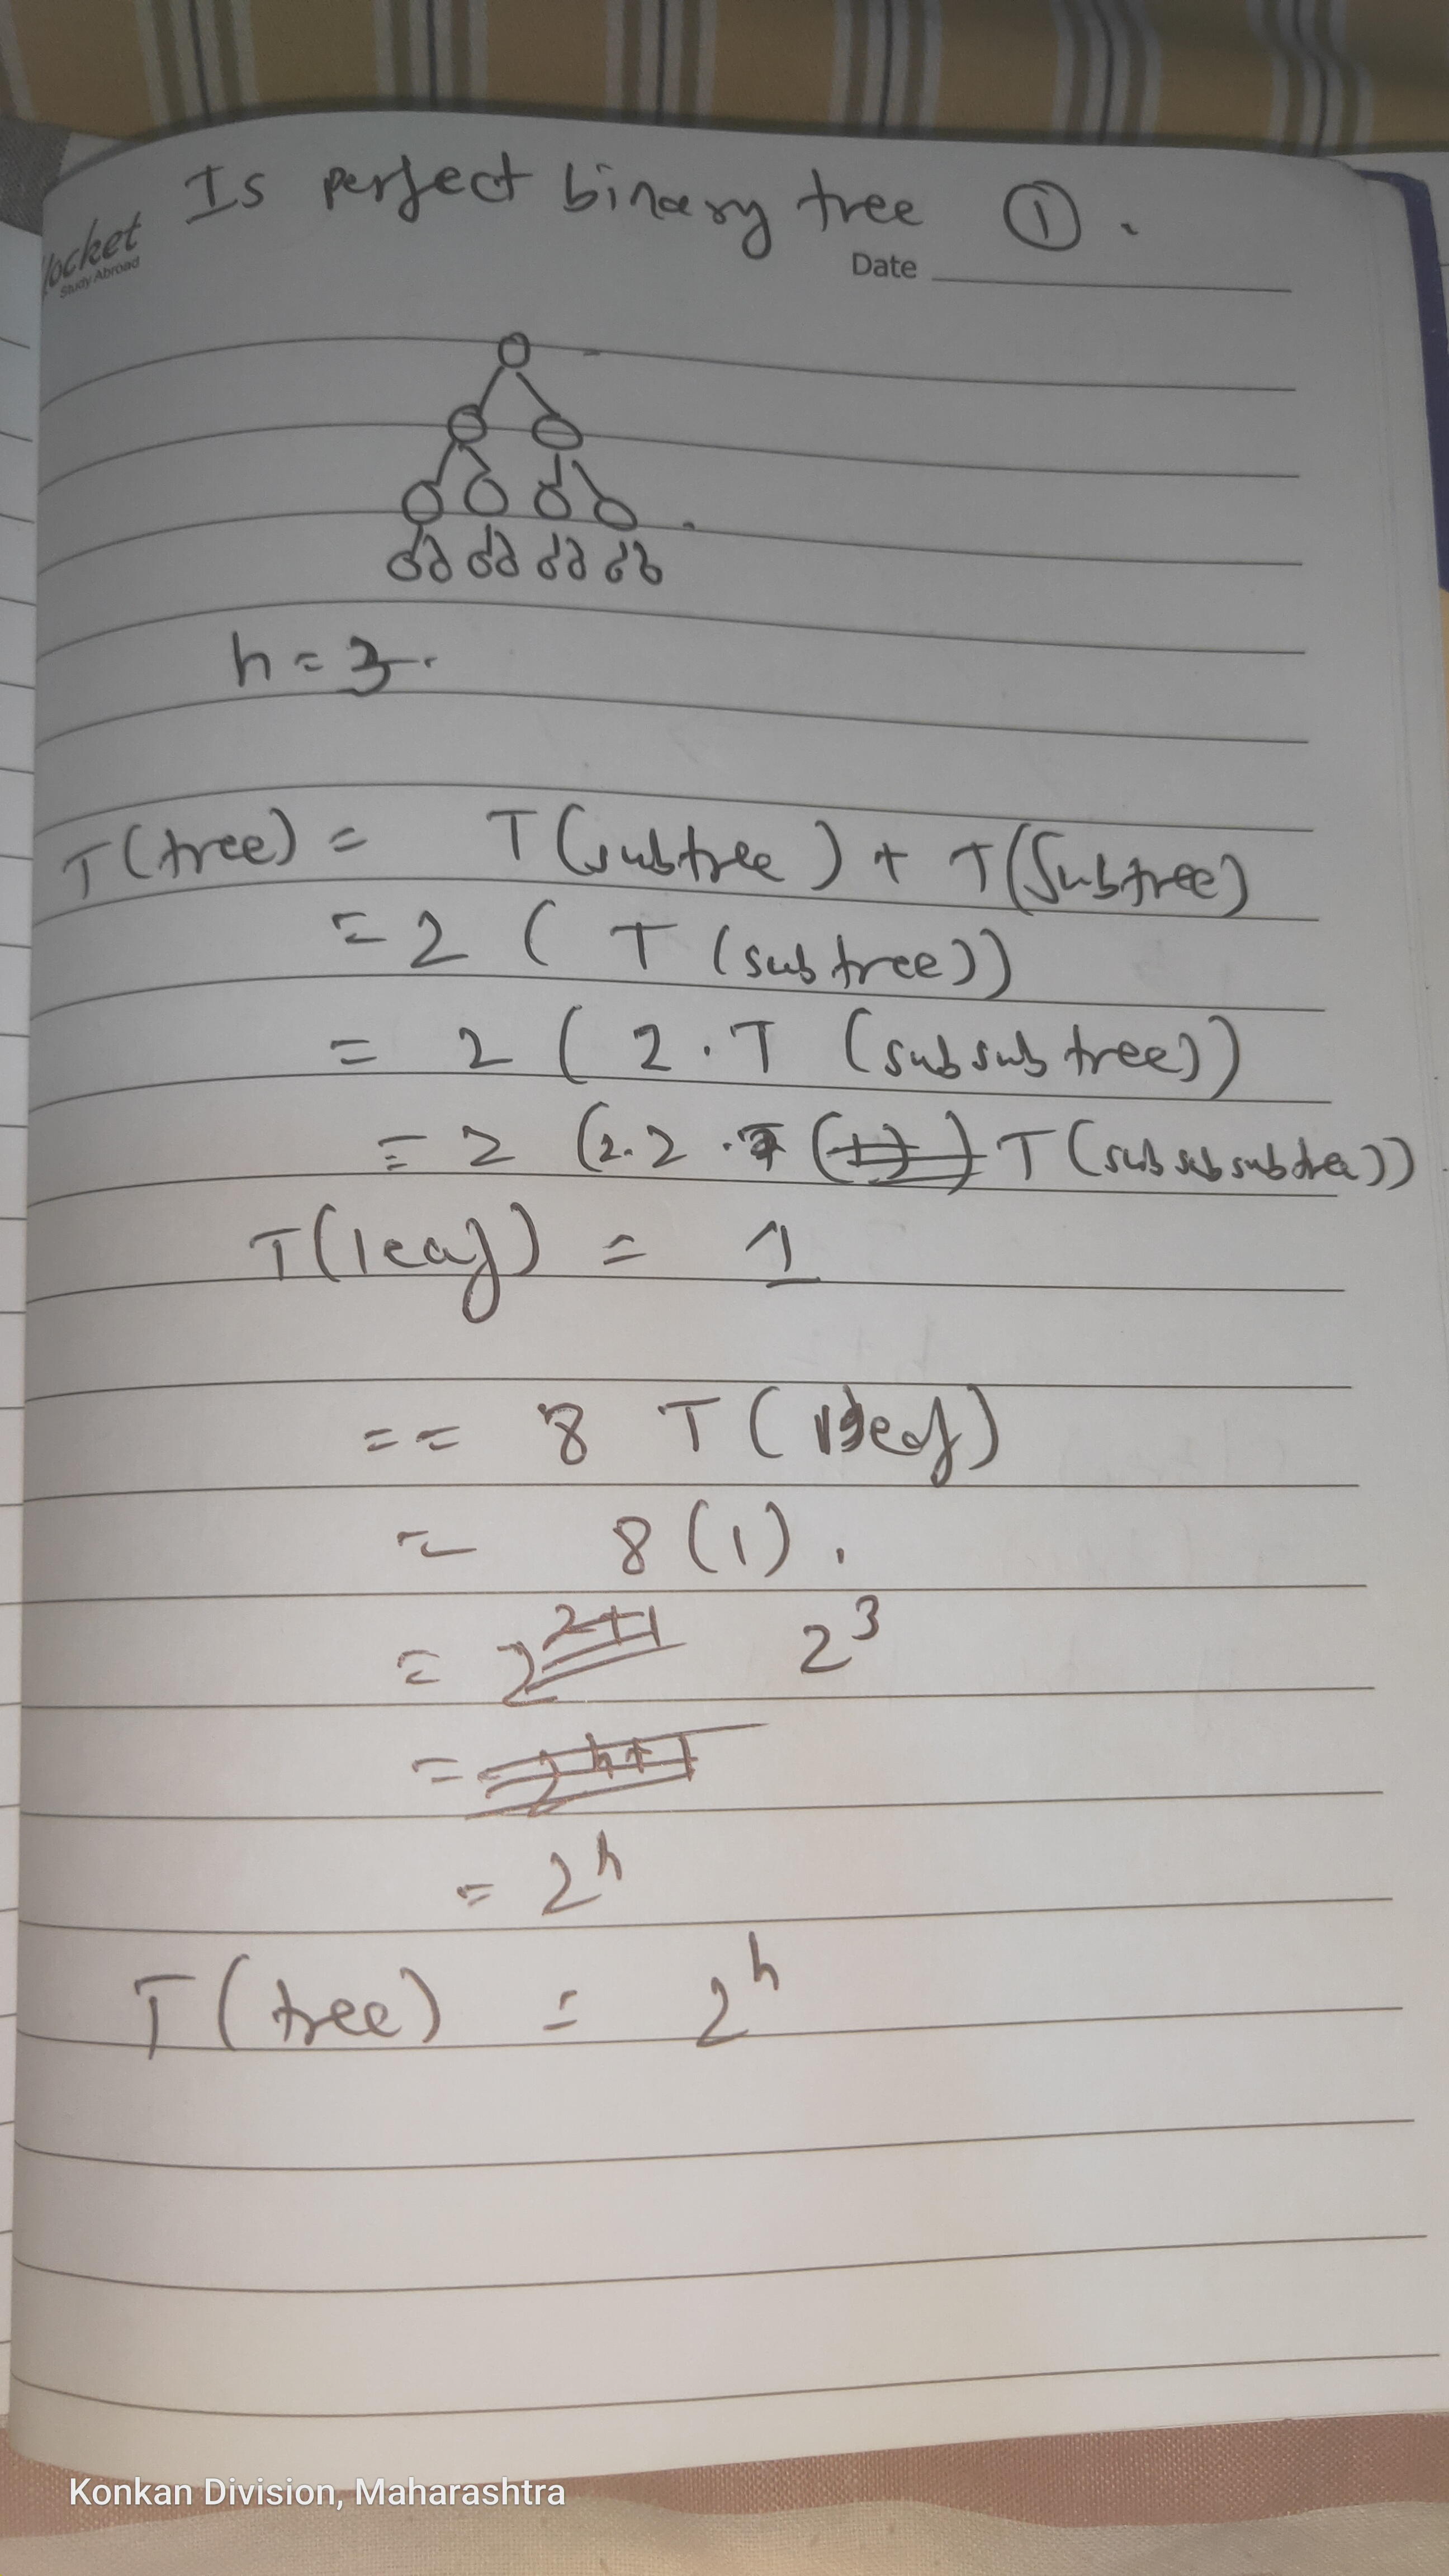 Is perfect binary tree ①.
locket
Study Abroad
Date
h = 3.
T(tree) = T(subtree) + T(Subtree)
= 2 ( T (subtree))
= 2 ( 2 . T (subsubtree))
= 2 (2.2 . T(subsubsubtree))
T(leaf) = 1
== 8 T(leaf)
= 8(1).
= 2^{2+1} 2^3
= 2^{h+1}
= 2^h
T(tree) = 2^h
Konkan Division, Maharashtra